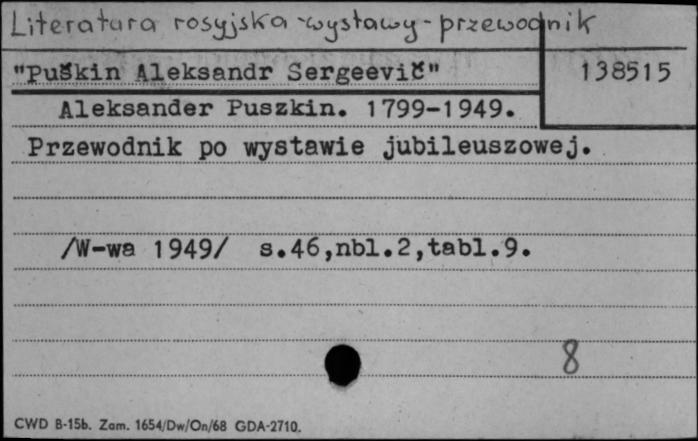 Literatura rosyjska - wystawy - przewodnik
"Puškin Aleksandr Sergeevič" 138515
Aleksander Puszkin. 1799-1949.
Przewodnik po wystawie jubileuszowej.
/W-wa 1949/ s.46,nbl.2,tabl.9.
8
CWD B-15b. Zam. 1654/Dw/On/68 GDA-2710.